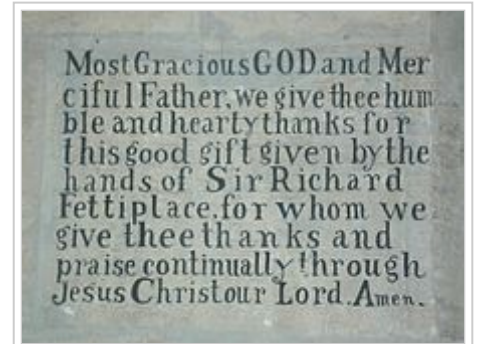 Most Gracious GOD and Mer
ciful Father, we give thee hum
ble and hearty thanks for
this good gift given by the
hands of Sir Richard
Fettiplace. for whom we
give thee thanks and
praise continually through
Jesus Christ our Lord. Amen.